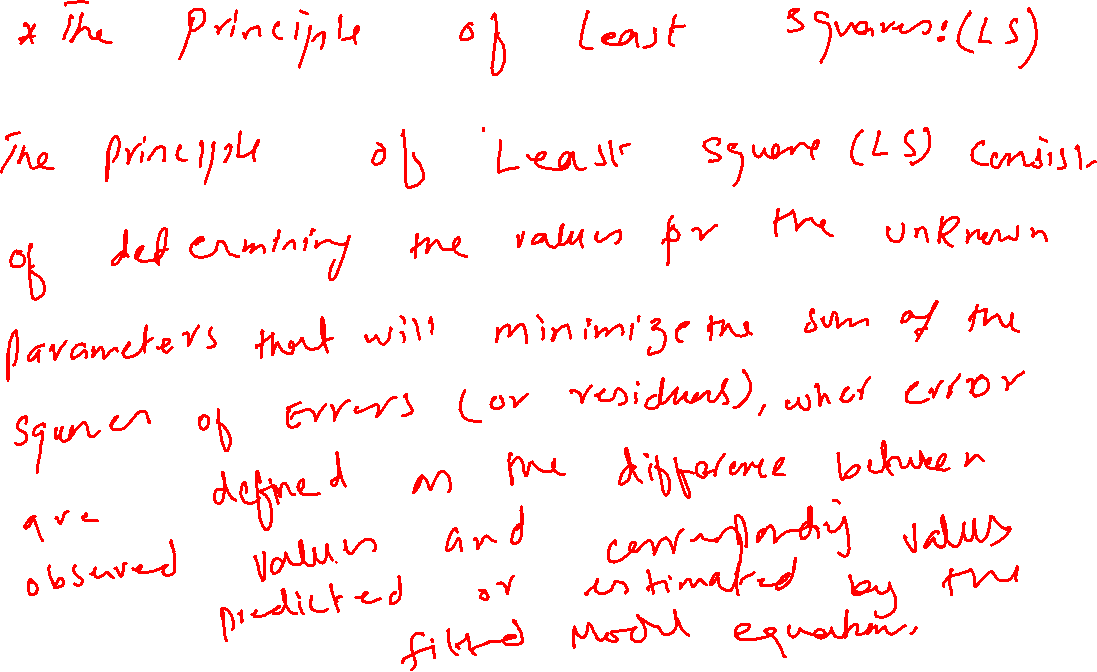 * The Principle of Least Squares: (LS)
The Principle of Least Square (LS) Consist
of determining the values for the unknown
Parameters that will minimize the sum of the
Squares of Errors (or residuals), wher error
are defined as the difference between
observed values and corresponding values
predicted or estimated by the
fitted Model equation.